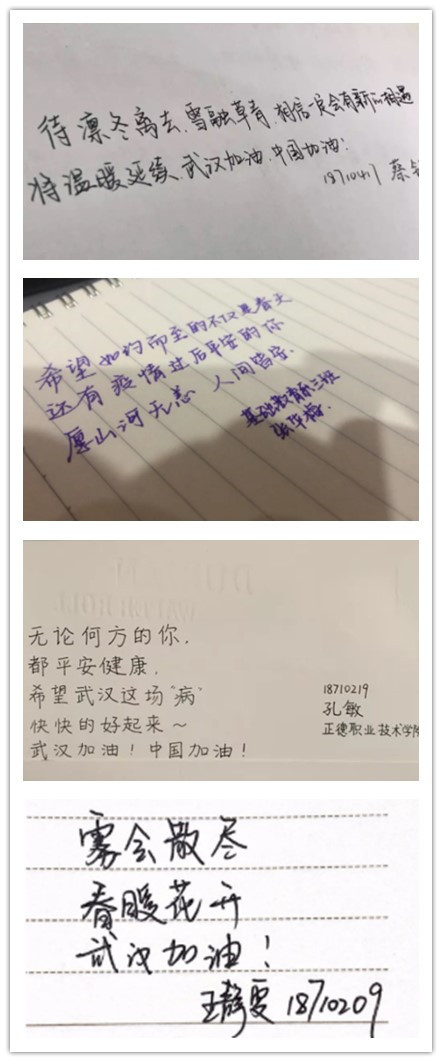 待凛冬离去,雪融草青,相信一定会有新的相遇
将温暖延续,武汉加油,中国加油!
18710417 蔡
希望如约而至的不仅是春天
还有疫情过后平安的你
愿山河无恙 人间皆安.
基础教育前三班
张华梅
无论何方的你,
都平安健康,
希望武汉这场"病"
18710219
快快的好起来～
孔敏
武汉加油!中国加油!
正德职业技术学院
雾会散尽
春暖花开
武汉加油!
王静雯 18710209